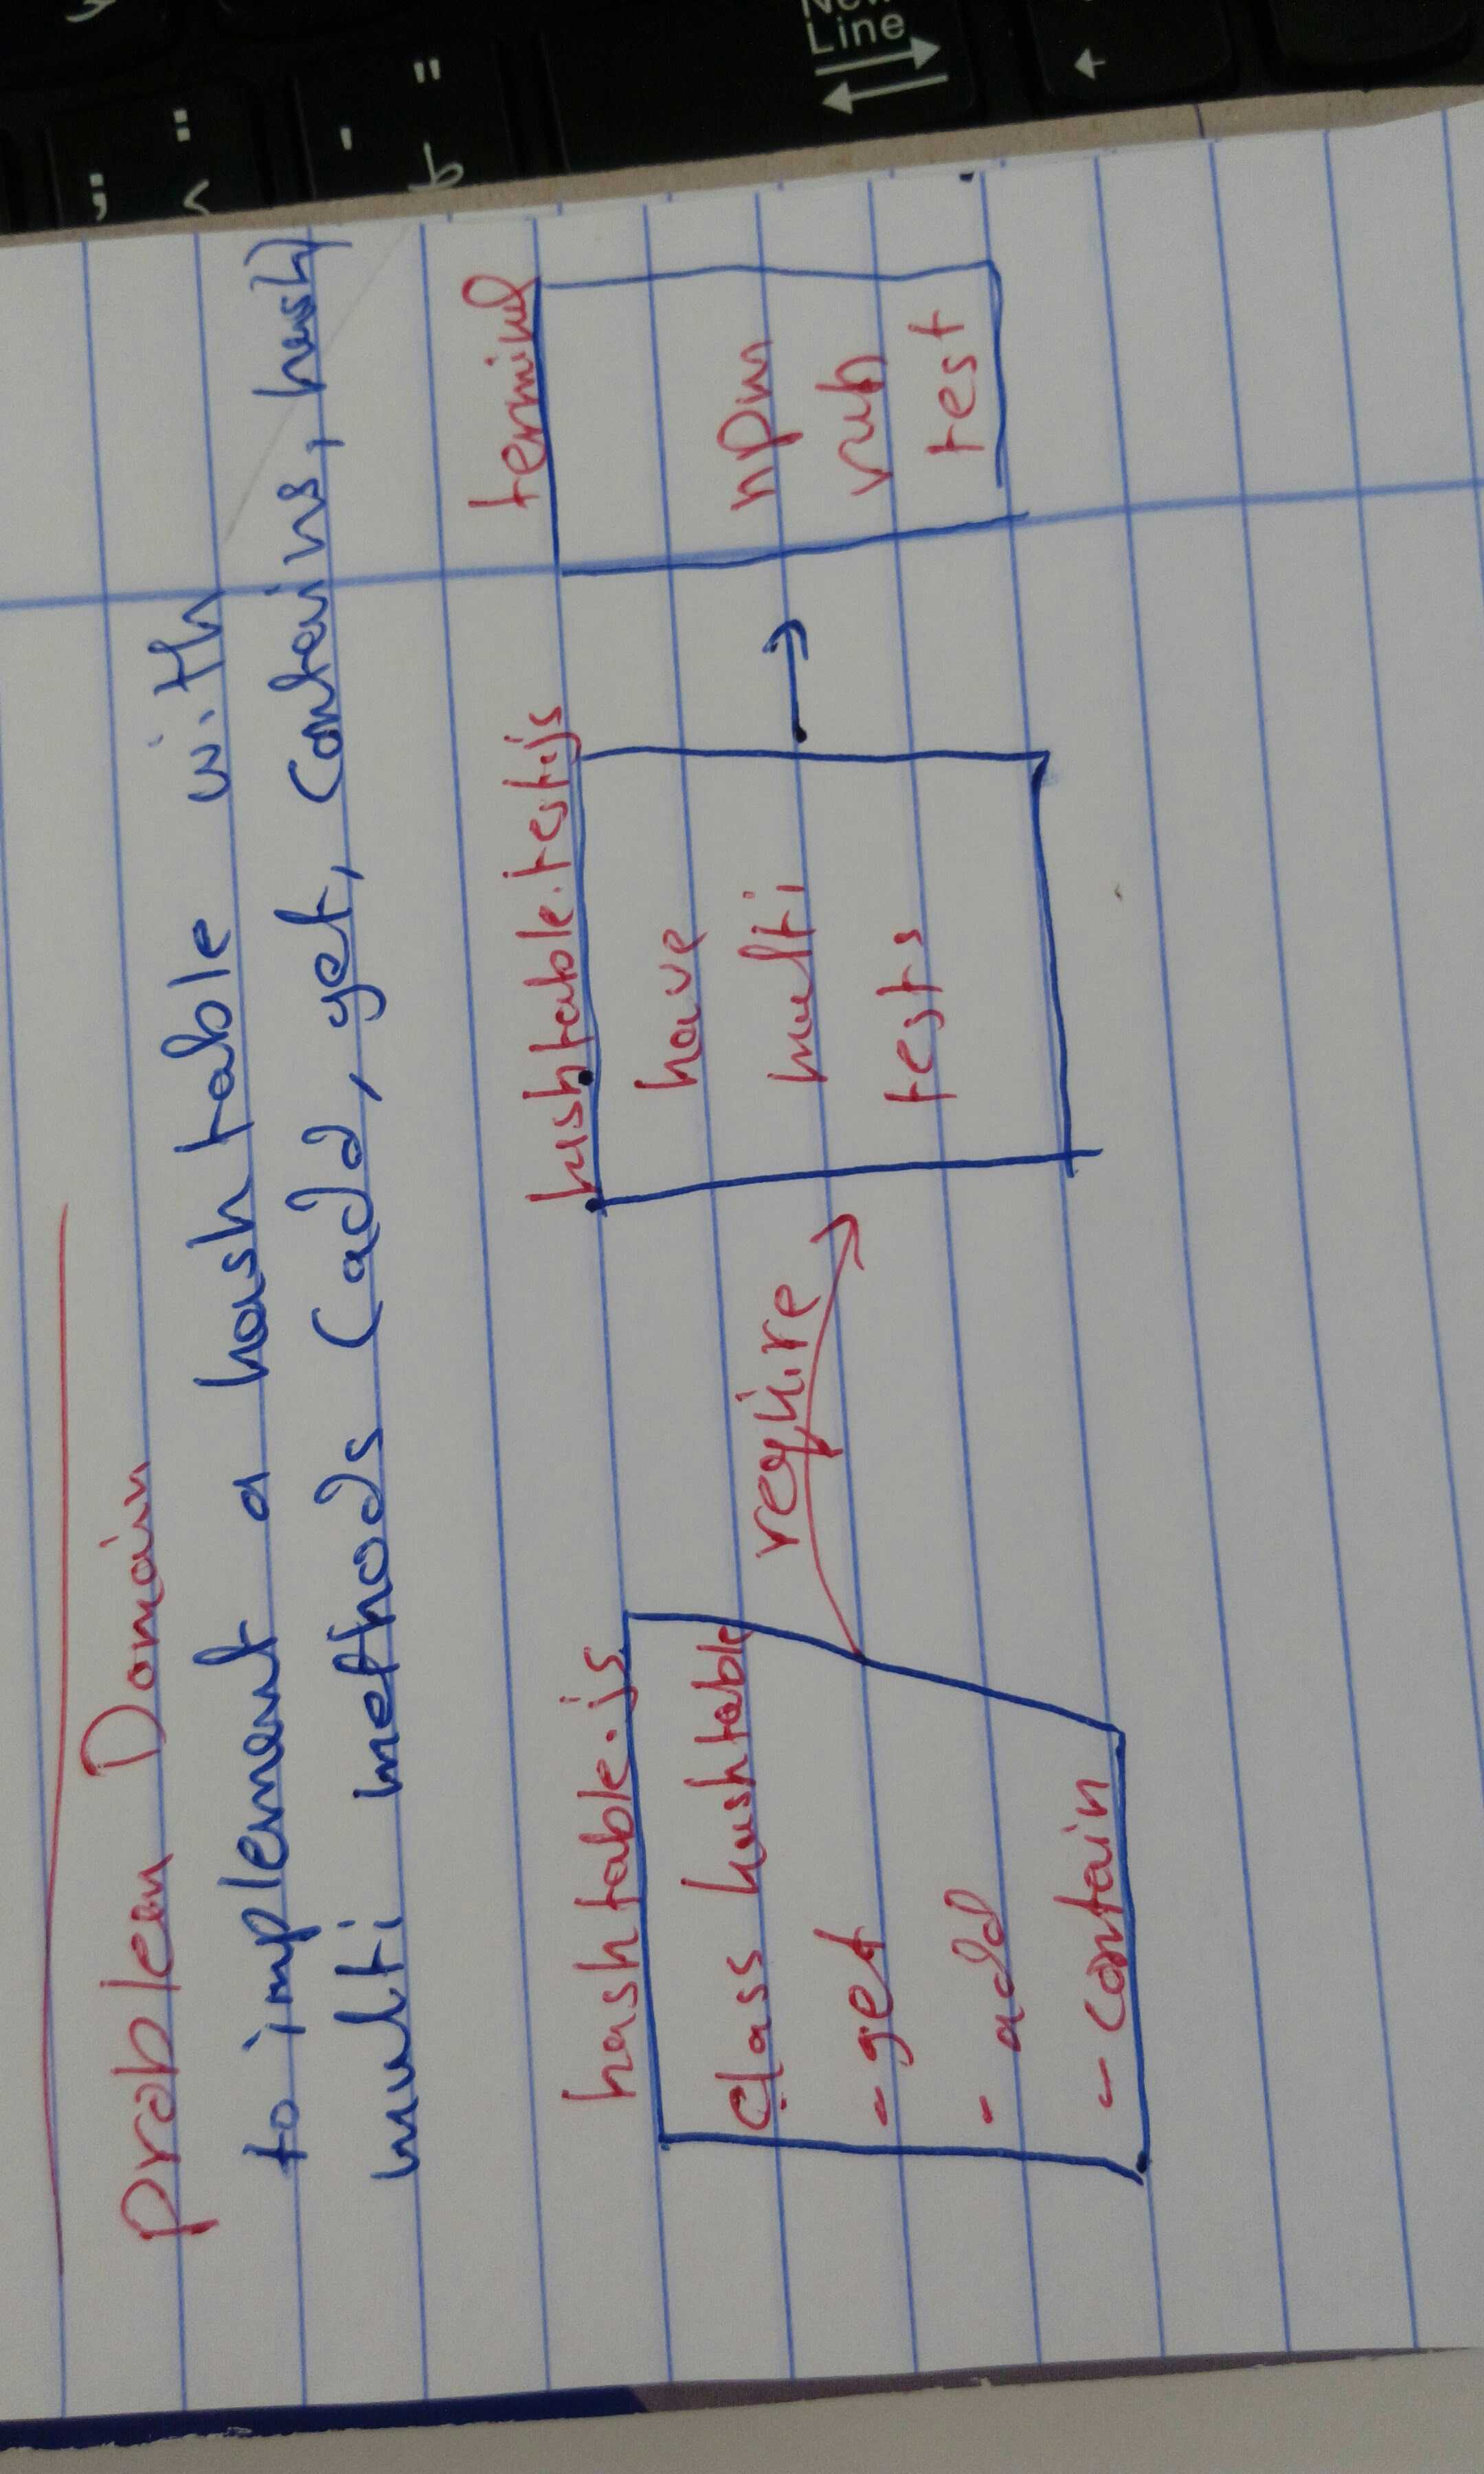 problem Domain
to implement a hash table with
multi methods (add, get, contains, hash)
hashtable.js
class hashtable
- get
- add
- contain
require
hashtable.test.js
have
multi
tests
terminal
npm
run
test
New
Line